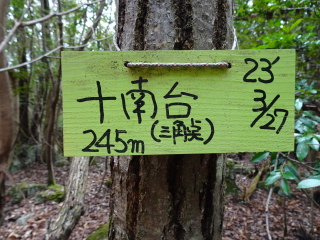 十南台
23'
3/27
245m (三角点)